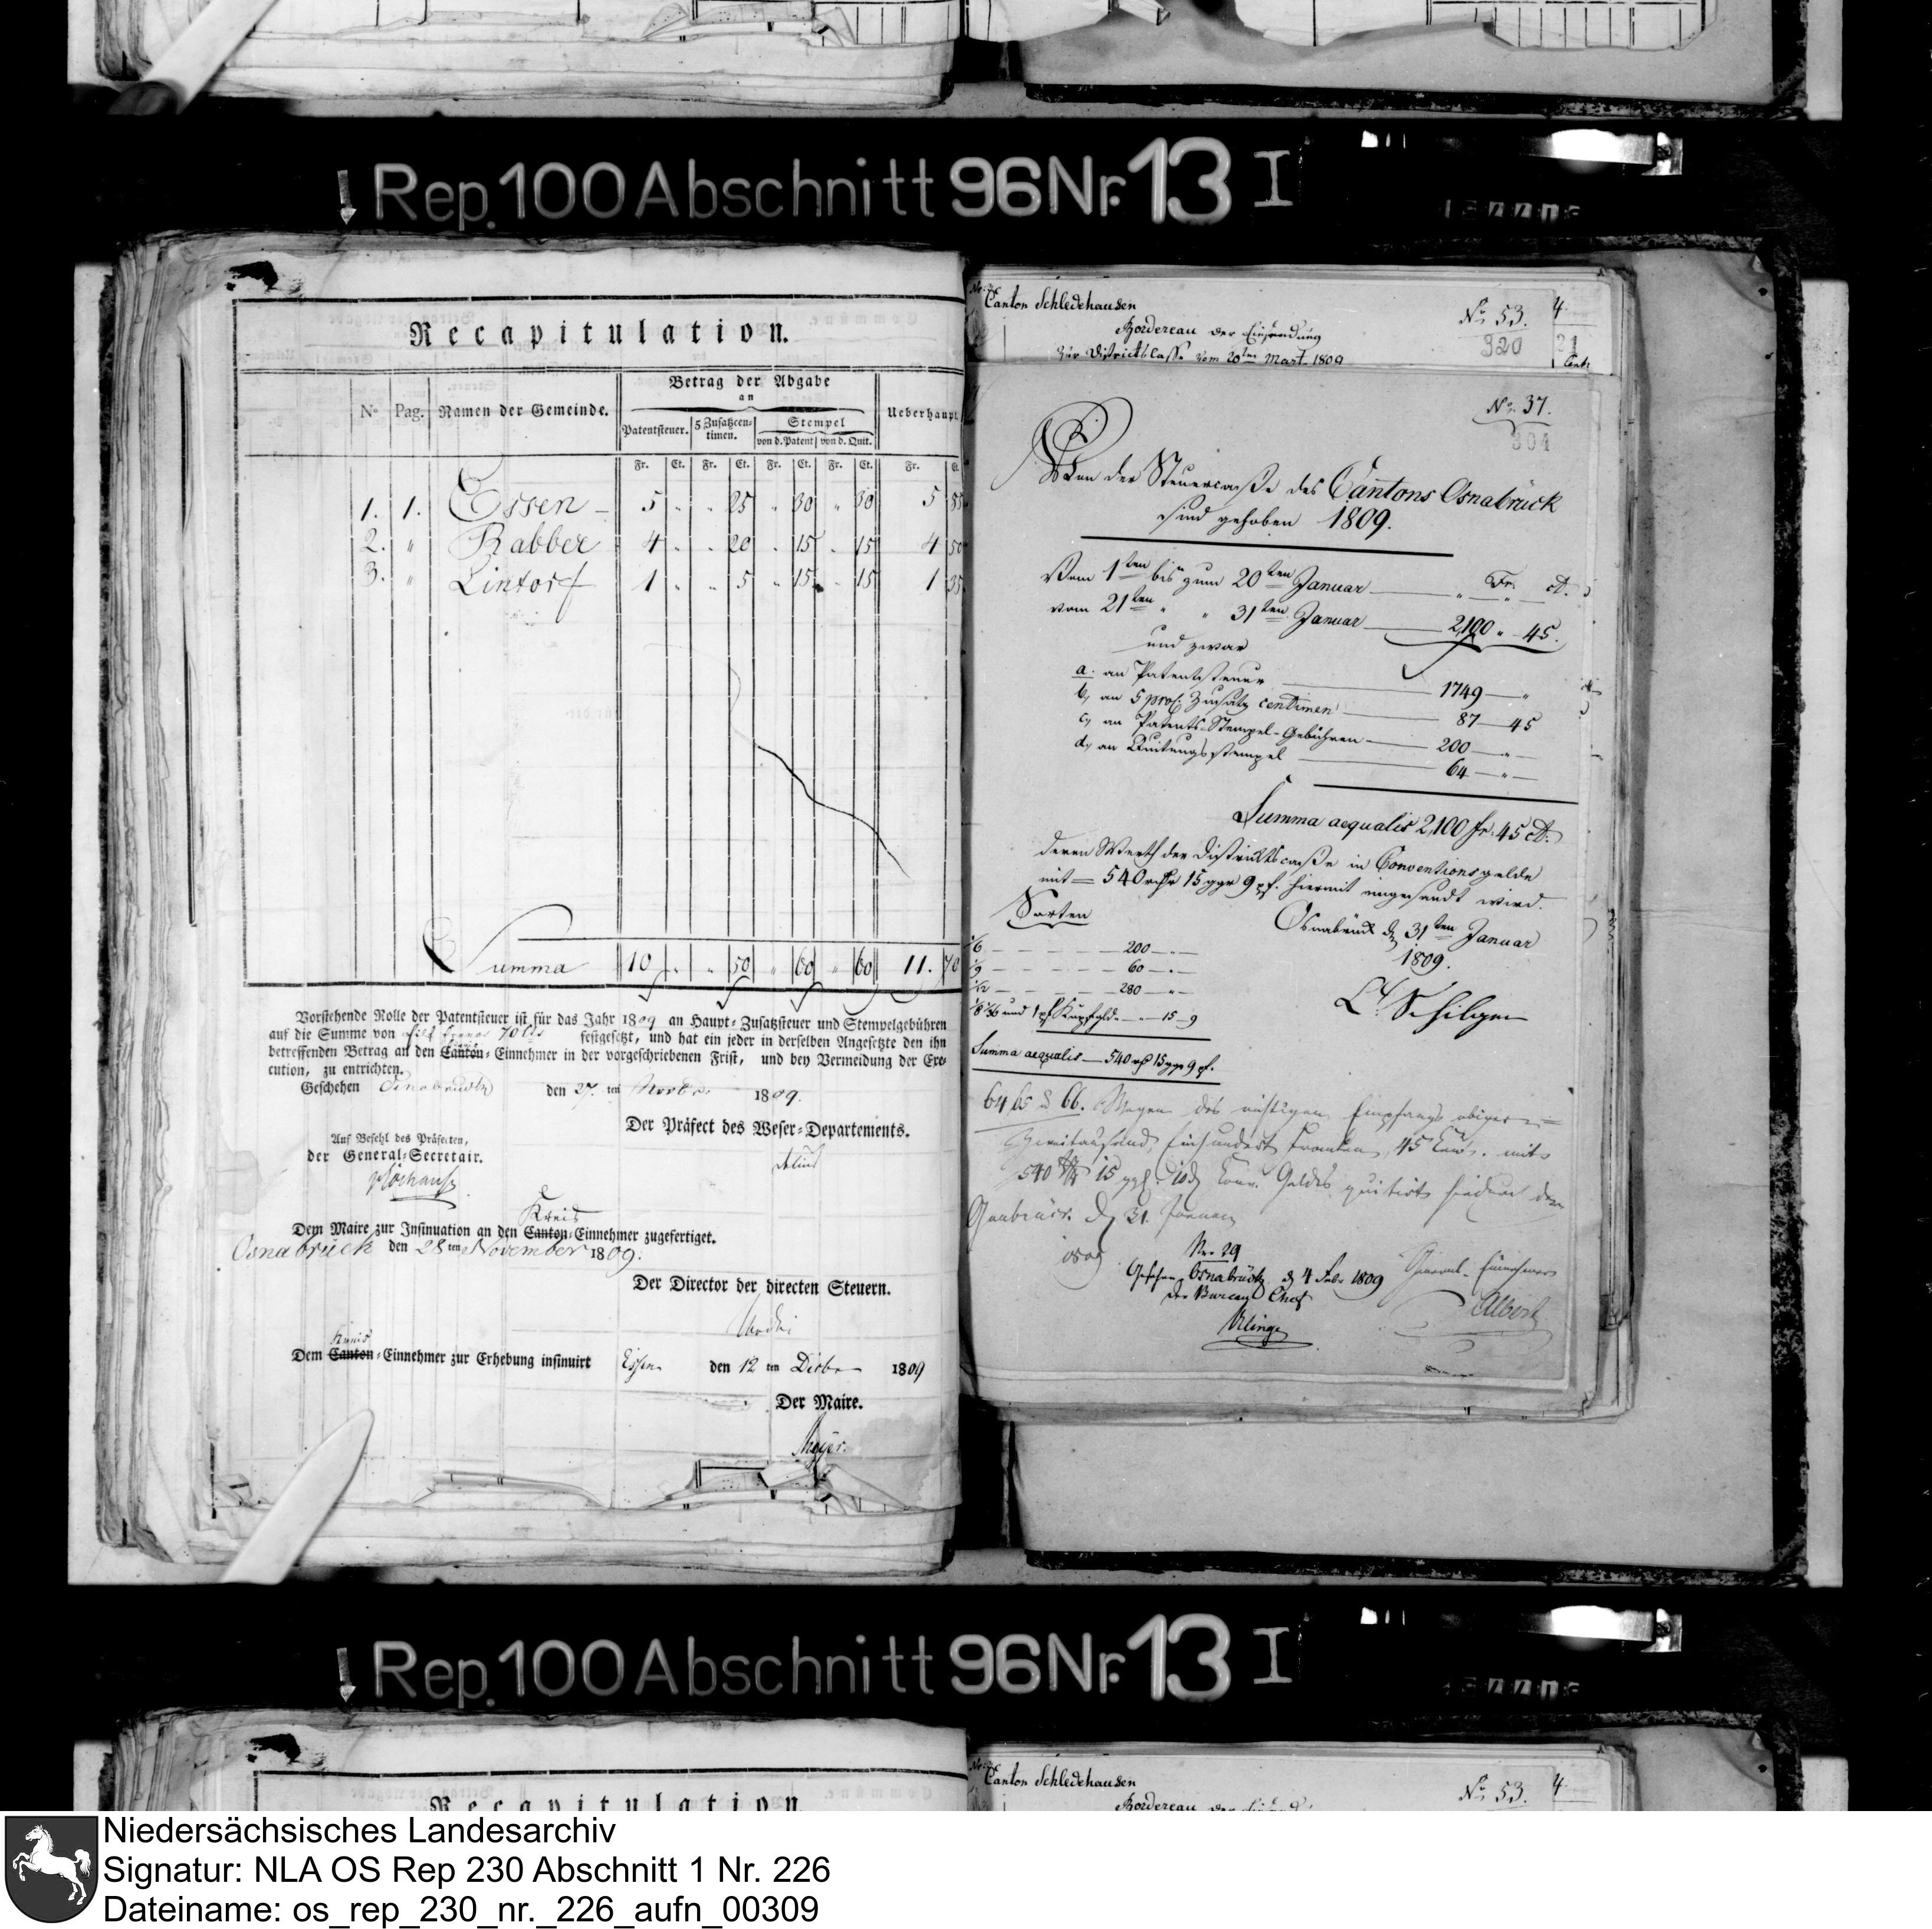 Rep. 100 Abschnitt 96 Nr. 13 I
Recapitulation.
Betrag der Abgabe
an
No Pag. Namen der Gemeinde. Patentsteuer. 5 Zusatzcen= timen. Stempel von d. Patent von d. Quit. Ueberhaupt
Fr. Ct. Fr. Ct. Fr. Ct. Fr. Ct. Fr. Ct.
1. 1. Essen 5 " " 25 " 30 " 30 5 85
2. " Rabber 4 " " 20 " 15 " 15 4 50
3. " Lintorf 1 " " 5 " 15 " 15 1 35
Summa 10 " " 50 " 60 " 60 11. 70
Vorstehende Rolle der Patentsteuer ist für das Jahr 1809 an Haupt= Zusatzsteuer und Stempelgebühren
auf die Summe von eilf francs 70 Cts festgesetzt, und hat ein jeder in derselben Angesetzte den ihn
betreffenden Betrag an den Canton= Einnehmer in der vorgeschriebenen Frist, und bey Vermeidung der Exe=
cution, zu entrichten.
Geschehen Osnabrück den 27. ten Novbr. 1809.
Der Präfect des Weser=Departements.
Auf Befehl des Präfecten,
der General=Secretair.
Kreis
Dem Maire zur Insinuation an den Canton=Einnehmer zugefertiget.
Osnabrück den 28 ten November 1809.
Der Director der directen Steuern.
Kreis
Dem Canton=Einnehmer zur Erhebung insinuirt Essen den 12 ten Decbr 1809
Der Maire.
Meyer.
Canton Schledehausen
No 53.
4
Bordereau der Einsendung
320
21
zur Districtscasse vom 20ten Mart. 1809
Cent:
No. 37.
304
Von der Steuercaße des Cantons Osnabrück
sind gehoben 1809.
Fr. ct.
Vom 1ten bis zum 20ten Januar " "
vom 21ten " " 31ten Januar 2,100 " 45.
und zwar
a. an Patentsteuer 1749 "
b, an 5 proC. Zusatz centimen 87 45
c, an Patents-Stempel-Gebühren 200 "
d, an Quitungsstempel 64 "
Summa aequalis 2,100 fr. 45 ct.
deren Werth der Districtscaße in Conventionsgelde
mit = 540 rthr 15 ggr 9 pf. hiermit eingesandt wird.
Sorten
Osnabrück d 31ten Januar
1809.
1/6 200 "
60 "
1/12 280 "
und 1 pf Kupfgeld " 15 9
Summa aequalis 540 rth 15 ggr 9 pf.
64 65 & 66. Wegen des richtigen Empfangs obiger
Zweitausend Einhundert Franken, 45 Cent. mit
540 15 ggl. 10 Conv. Geldes quitirt hiedurch der
Osnabrück d 31. Januar
1809
General-Einnehmer
Albert
Nr. 29
Gesehen Osnabrück d 4 Febr 1809
der Bureau Chef
Klinge
Rep. 100 Abschnitt 96 Nr. 13 I
Recapitulation.
Canton Schledehausen
No 53.
4
Niedersächsisches Landesarchiv
Signatur: NLA OS Rep 230 Abschnitt 1 Nr. 226
Dateiname: os_rep_230_nr._226_aufn_00309